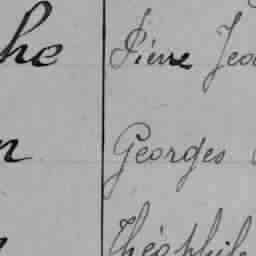 he Pierre Jea
n Georges
Théophile